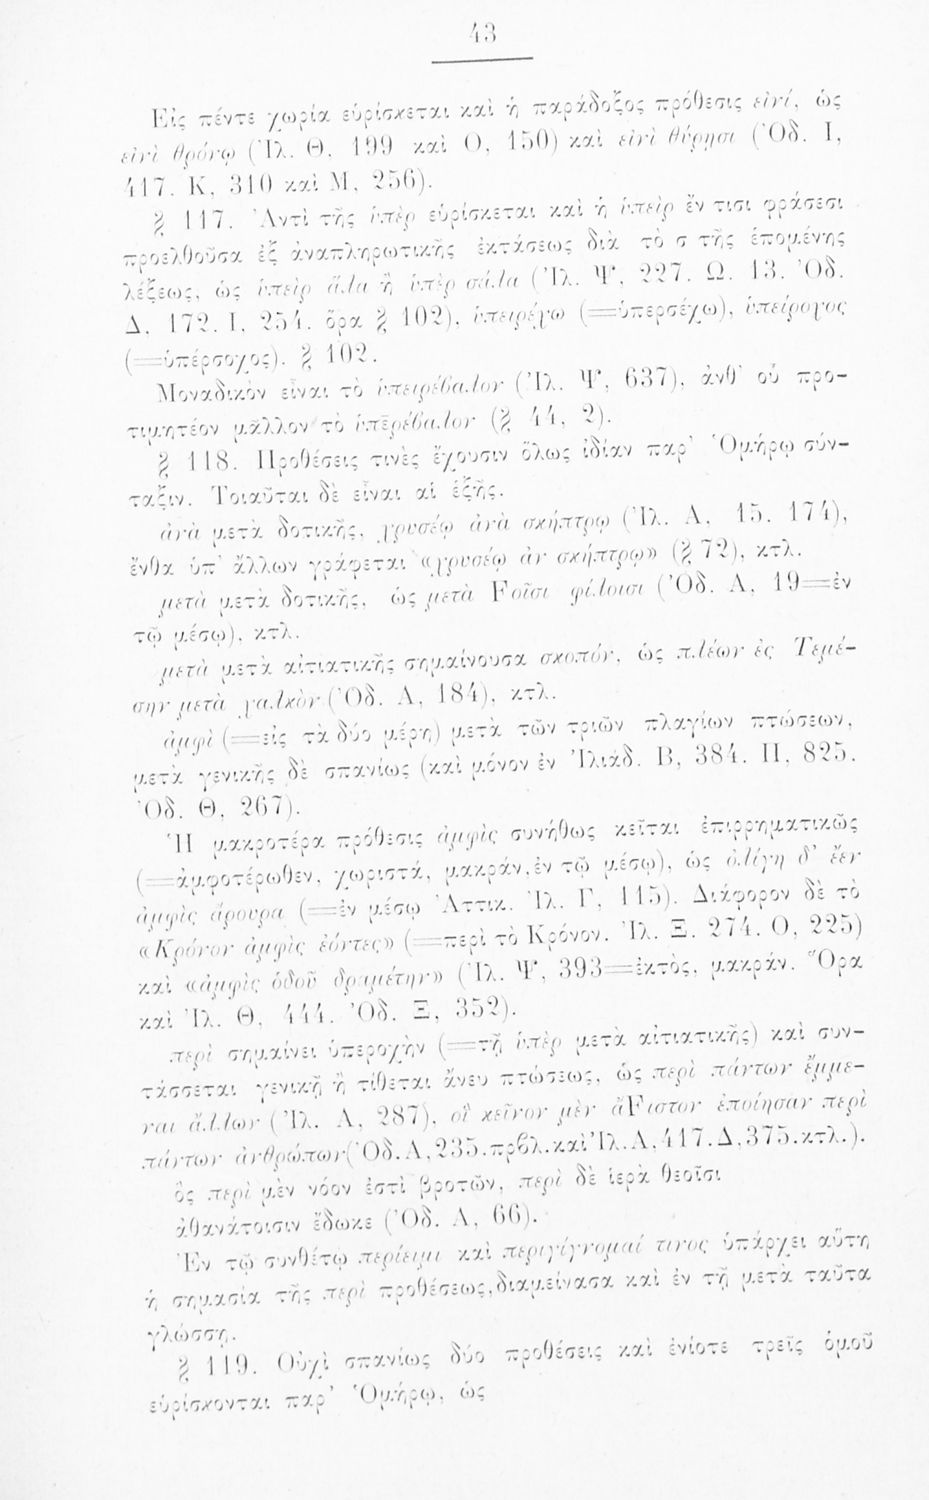 43
Εἰς πέντε χωρία εὑρίσκεται καὶ ἡ παράδοξος πρόθεσις εἰνί, ὡς
εἰνὶ θρόνῳ (Ἰλ. Θ, 199 καὶ Ο, 150) καὶ εἰνὶ θύρῃσι (Ὀδ. Ι,
417. Κ, 310 καὶ Μ, 256).
§ 117. Ἀντὶ τῆς ὑπὲρ εὑρίσκεται καὶ ἡ ὑπεὶρ ἔν τισι φράσεσι
προελθοῦσα ἐξ ἀναπληρωτικῆς ἐκτάσεως διὰ τὸ σ τῆς ἑπομένης
λέξεως, ὡς ὑπεὶρ ἅλα ἢ ὑπὲρ σάλα (Ἰλ. Ψ, 227. Ω. 13. Ὀδ.
Δ, 172. Ι, 254. ὅρα § 102), ὑπειρέχω (=ὑπερσέχω), ὑπείροχος
(=ὑπέρσοχος). § 102.
Μοναδικὸν εἶναι τὸ ὑπειρέβαλον (Ἰλ. Ψ, 637), ἀνθ' οὗ προ-
τιμητέον μᾶλλον τὸ ὑπε̄ρέβαλον (§ 44, 2).
§ 118. Προθέσεις τινὲς ἔχουσιν ὅλως ἰδίαν παρ' Ὁμήρῳ σύν-
ταξιν. Τοιαῦται δὲ εἶναι αἱ ἑξῆς.
ἀνὰ μετὰ δοτικῆς, χρυσέῳ ἀνὰ σκήπτρῳ (Ἰλ. Α, 15. 174),
ἔνθα ὑπ' ἄλλων γράφεται «χρυσέῳ ἀν σκήπτρῳ» (§ 72), κτλ.
μετὰ μετὰ δοτικῆς, ὡς μετὰ Ϝοῖσι φίλοισι (Ὀδ. Α, 19=ἐν
τῷ μέσῳ), κτλ.
μετὰ μετὰ αἰτιατικῆς σημαίνουσα σκοπόν, ὡς πλέων ἐς Τεμέ-
σην μετὰ χαλκὸν (Ὀδ. Α, 184), κτλ.
ἀμφὶ (=εἰς τὰ δύο μέρη) μετὰ τῶν τριῶν πλαγίων πτώσεων,
μετὰ γενικῆς δὲ σπανίως (καὶ μόνον ἐν Ἰλιάδ. Β, 384. Π, 825.
Ὀδ. Θ, 267).
Ἡ μακροτέρα πρόθεσις ἀμφὶς συνήθως κεῖται ἐπιρρηματικῶς
(=ἀμφοτέρωθεν, χωριστά, μακράν, ἐν τῷ μέσῳ), ὡς ὀλίγη δ' ἔεν
ἀμφὶς ἄρουρα (=ἐν μέσῳ Ἀττικ. Ἰλ. Γ, 115). Διάφορον δὲ τὸ
«Κρόνον ἀμφὶς ἐόντες» (=περὶ τὸ Κρόνον. Ἰλ. Ξ. 274. Ο, 225)
καὶ «ἀμφὶς ὁδοῦ δραμέτην» (Ἰλ. Ψ, 393=ἐκτὸς, μακράν. Ὅρα
καὶ Ἰλ. Θ, 444. Ὀδ. Ξ, 352).
περὶ σημαίνει ὑπεροχὴν (=τῇ ὑπὲρ μετὰ αἰτιατικῆς) καὶ συν-
τάσσεται γενικῇ ἢ τίθεται ἄνευ πτώσεως, ὡς περὶ πάντων ἔμμε-
ναι ἄλλων (Ἰλ. Α, 287), οἳ κεῖνον μὲν ἄϜιστον ἐποίησαν περὶ
πάντων ἀνθρώπων (Ὀδ. Α, 235. πρβλ. καὶ Ἰλ. Α, 417. Δ, 375. κτλ.).
ὃς περὶ μὲν νόον ἐστὶ βροτῶν, περὶ δὲ ἱερὰ θεοῖσι
ἀθανάτοισιν ἔδωκε (Ὀδ. Α, 66).
Ἐν τῷ συνθέτῳ περίειμι καὶ περιγίγνομαί τινος ὑπάρχει αὕτη
ἡ σημασία τῆς περὶ προθέσεως, διαμείνασα καὶ ἐν τῇ μετὰ ταῦτα
γλώσσῃ.
§ 119. Οὐχὶ σπανίως δύο προθέσεις καὶ ἐνίοτε τρεῖς ὁμοῦ
εὑρίσκονται παρ' Ὁμήρῳ, ὡς